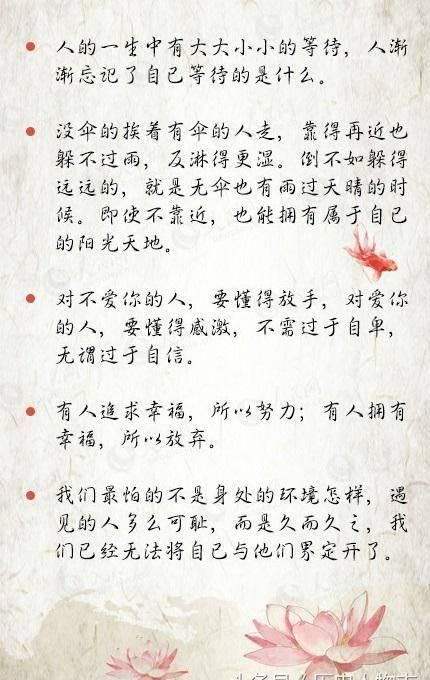 人的一生中有大大小小的等待，人渐
渐忘记了自己等待的是什么。
没伞的挨着有伞的人走，靠得再近也
躲不过雨，反淋得更湿。倒不如躲得
远远的，就是无伞也有雨过天晴的时
候。即使不靠近，也能拥有属于自己
的阳光天地。
对不爱你的人，要懂得放手，对爱你
的人，要懂得感激，不需过于自卑，
无谓过于自信。
有人追求幸福，所以努力；有人拥有
幸福，所以放弃。
我们最怕的不是身处的环境怎样，遇
见的人多么可耻，而是久而久之，我
们已经无法将自己与他们界定开了。